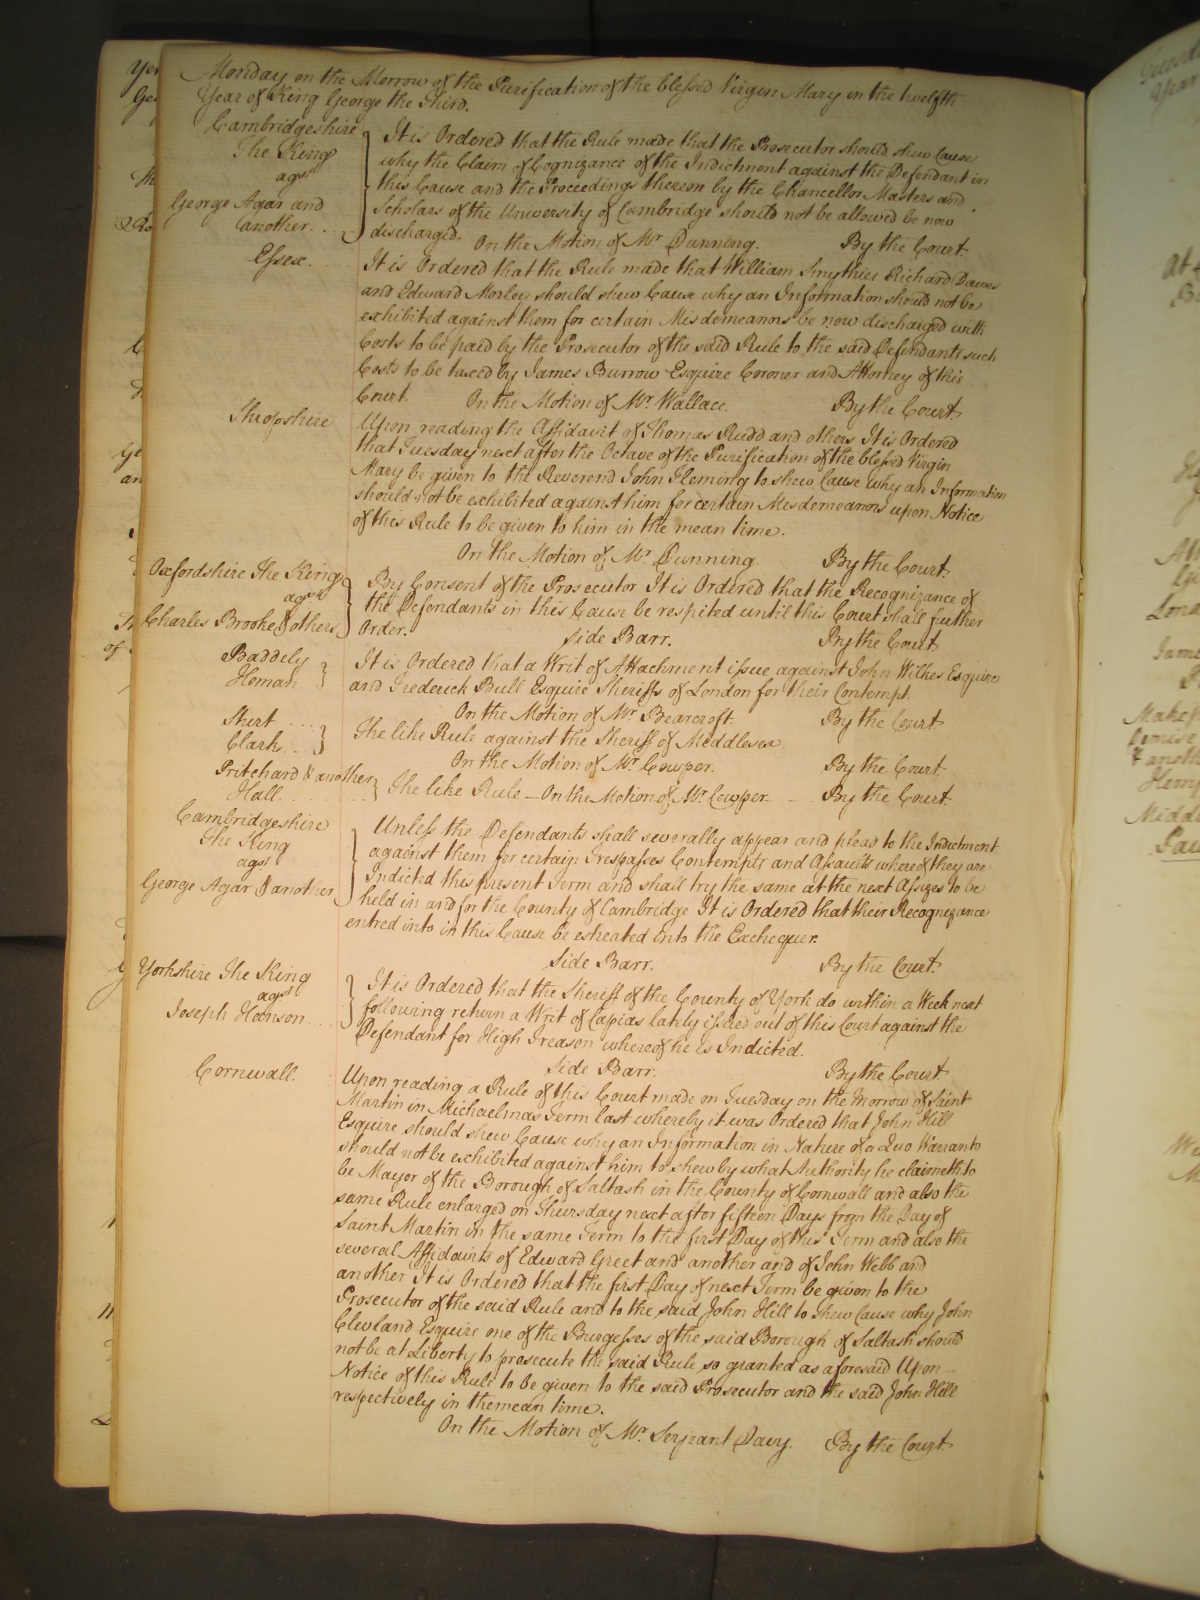 Monday on the Morrow of the Purification of the blessed Virgin Mary in the twelfth
Year of King George the Third.
Cambridgeshire
The King
agst
George Agar and
another
It is Ordered that the Rule made that the Prosecutor should shew Cause
why the Claim of Cognizance of the Indictment against the Defendant in
this Cause and the Proceedings thereon by the Chancellor Masters and
Scholars of the University of Cambridge should not be allowed be now
discharged. On the Motion of Mr. Dunning. By the Court
Essex.
It is Ordered that the Rule made that William Smythies Richard Dawes
and Edward Morley should shew Cause why an Information should not be
exhibited against them for certain Misdemeanors be now discharged with
Costs to be paid by the Prosecutor of the said Rule to the said Defendants such
Costs to be taxed by James Burrow Esquire Coroner and Attorney of this
Court. On the Motion of Mr. Wallace. By the Court
Shropshire
Upon reading the Affidavit of Thomas Rudd and others It is Ordered
that Tuesday next after the Octave of the Purification of the blessed Virgin
Mary be given to the Reverend John Fleming to shew Cause why an Information
should not be exhibited against him for certain Misdemeanors upon Notice
of this Rule to be given to him in the mean time.
On the Motion of Mr. Dunning By the Court.
Oxfordshire The King
agst
Charles Brooke & others
By Consent of the Prosecutor It is Ordered that the Recognizance of
the Defendants in this Cause be respited until this Court shall further
Order. Side Barr. By the Court
Baddely
Homan
It is Ordered that a Writ of Attachment issue against John Wilkes Esquire
and Frederick Bull Esquire Sheriffs of London for their Contempt.
On the Motion of Mr. Bearcroft. By the Court
Clark
The like Rule against the Sheriff of Middlesex
On the Motion of Mr. Cowper. By the Court
Pritchard & another
Hall.
The like Rule - On the Motion of Mr. Cowper - By the Court.
Cambridgeshire
The King
agst
George Agar & another
Unless the Defendants shall severally appear and plead to the Indictment
against them for certain Trespasses Contempts and Assaults whereof they are
Indicted this present Term and shall try the same at the next Assizes to be
held in and for the County of Cambridge It is Ordered that their Recognizance
entred into in this Cause be estreated into the Exchequer.
Side Barr. By the Court.
Yorkshire The King
agst
Joseph Hanson
It is Ordered that the Sheriff of the County of York do within a Week next
following return a Writ of Capias lately issued out of this Court against the
Defendant for High Treason whereof he is Indicted.
Side Barr. By the Court
Cornwall.
Upon reading a Rule of this Court made on Tuesday on the Morrow of Saint
Martin in Michaelmas Term last whereby it was Ordered that John Hill
Esquire should shew Cause why an Information in Nature of a Quo Warranto
should not be exhibited against him to shew by what Authority he claimeth to
be Mayor of the Borough of Saltash in the County of Cornwall and also the
same Rule enlarged on Thursday next after fifteen Days from the Day of
Saint Martin in the same Term to the first Day of this Term and also the
several Affidavits of Edward Greet and another and of John Webb and
another It is Ordered that the first Day of next Term be given to the
Prosecutor of the said Rule and to the said John Hill to shew Cause why John
Clevland Esquire one of the Burgesses of the said Borough of Saltash should
not be at Liberty to prosecute the said Rule so granted as aforesaid Upon
Notice of this Rule to be given to the said Prosecutor and the said John Hill
respectively in the mean time.
On the Motion of Mr. Serjeant Davy. By the Court